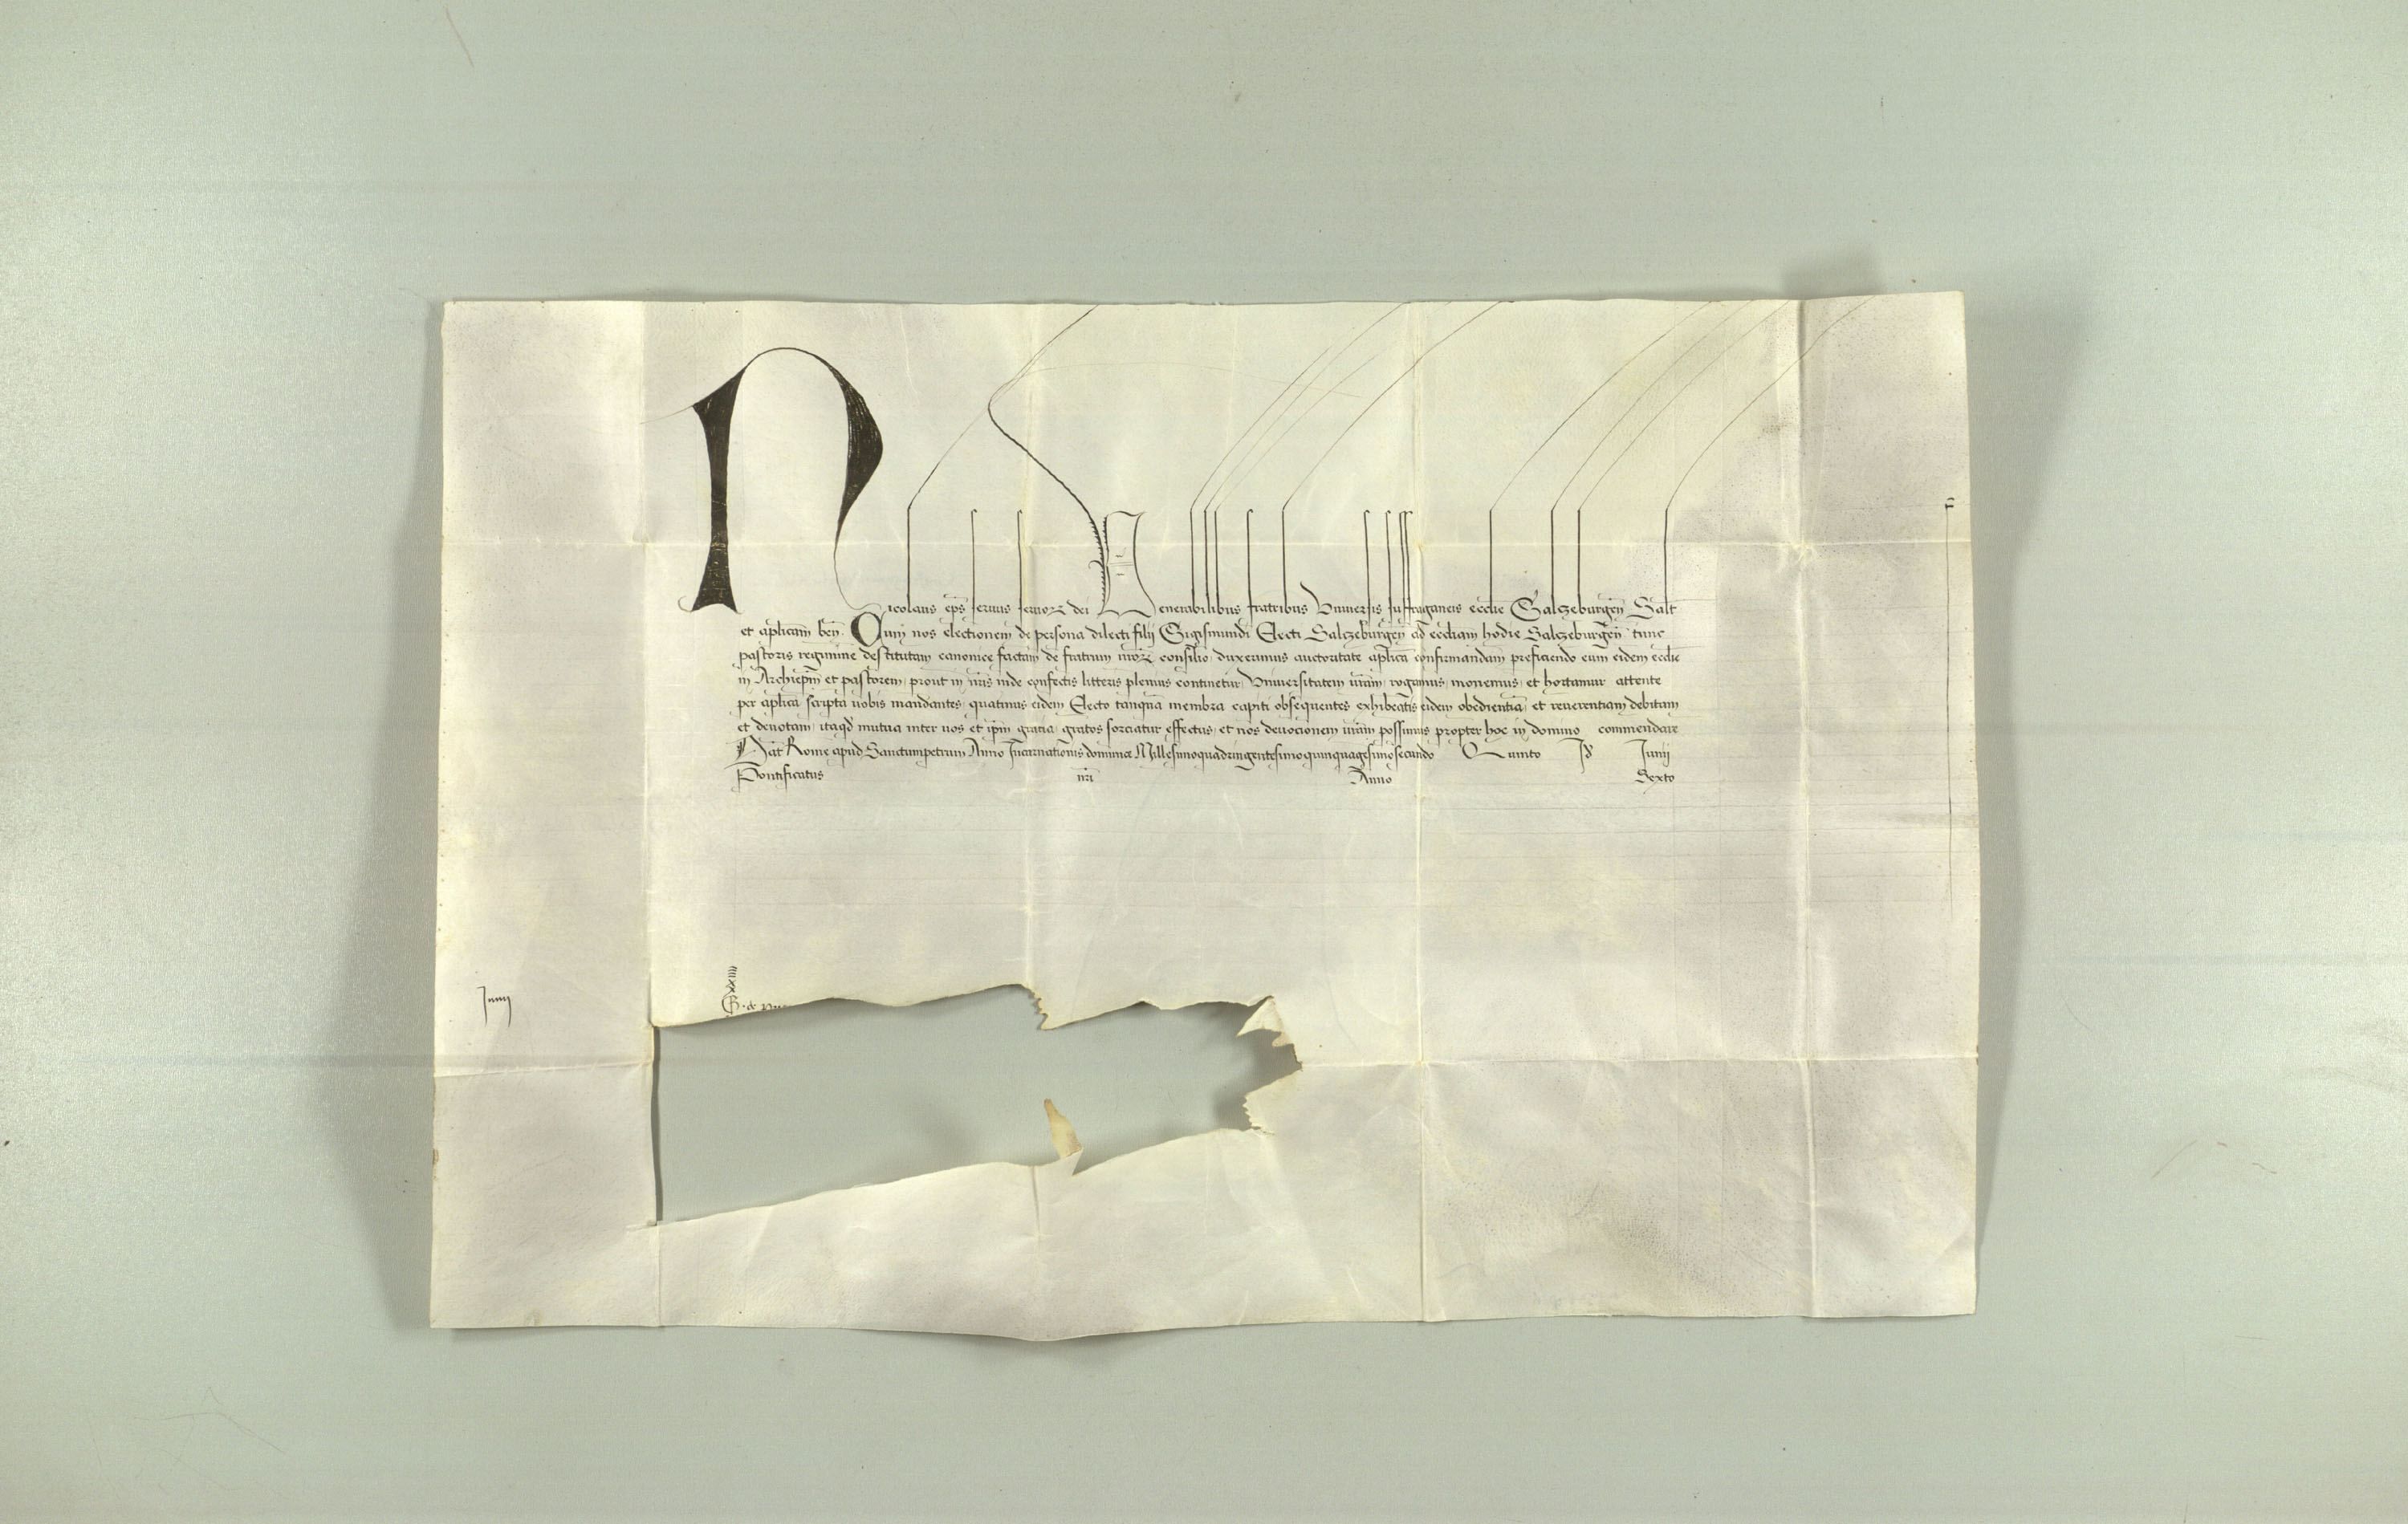 Nicolaus ep̄s seruus seruoꝝ dei Venerabilibus fratribus Vniuersis suffraganeis eccl̄ie Salczeburgen̄ Sal̄t
et ap̄licam ben̄. Cum nos electionem de persona dilecti filij Sigismundi Electi Salczeburgen̄ ad eccl̄iam hodie Salczeburgen̄ tunc
pastoris regimine destitutam canonice factam de fratrum n̄roꝝ consilio duxerimus auctoritate ap̄lica confirmandam preficiendo eum eidem eccl̄ie
in Archiep̄m et pastorem, prout in n̄ris inde confectis litteris plenius continetur, Vniuersitatem v̄ram, rogamus, monemus, et hortamur attente
per ap̄lica scripta vobis mandantes, quatinus eidem Electo tanquā membra capiti obsequentes exhibeatis eidem obedientiā, et reuerentiam debitam
et deuotam, itaqđ mutua inter vos et ip̄m gratia, gratos sorciatur effectus, et nos deuocionem v̄ram possimus propter hoc in domino commendare
Dat̄ Rome apud Sanctumpetrum Anno Incarnationis dominice Millesimoquadringentesimoquinquagesimosecundo Quinto Id̄ Junij
Pontificatus n̄ri Anno Sexto
xiiii
G. de
Junij